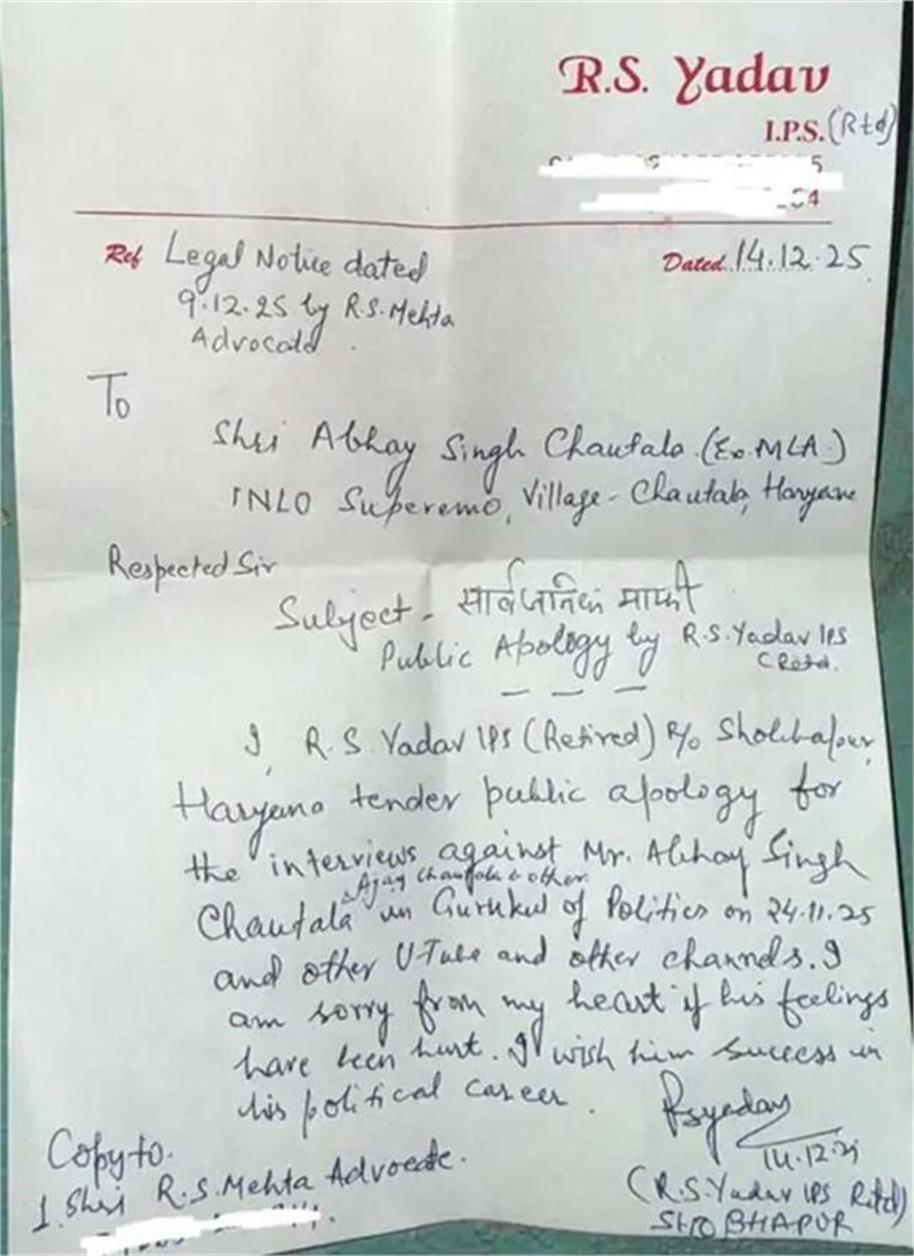 R.S. Yadav
I.P.S. (Rtd)
5
4
Ref Legal Notice dated
9.12.25 by R.S. Mehta
Advocate
Dated 14.12.25
To
Shri Abhay Singh Chautala (Ex. MLA)
INLO Superemo, Village - Chautala, Haryana
Respected Sir
Subject - सार्वजनिक माफी
Public Apology by R.S. Yadav IPS
(Retd.
I, R.S. Yadav IPS (Retired) R/o
Haryana tender public apology for
the interviews against Mr. Abhay Singh
Ajay Chautala & other
Chautala in Gurukul of Politics on 24.11.25
and other U-Tube and other channels. I
am sorry from my heart if his feelings
have been hurt. I wish him success in
his political career.
Rsyadav
14.12.25
(R.S. Yadav IPS Retd)
Copy to.
1. Shri R.S. Mehta Advocate.